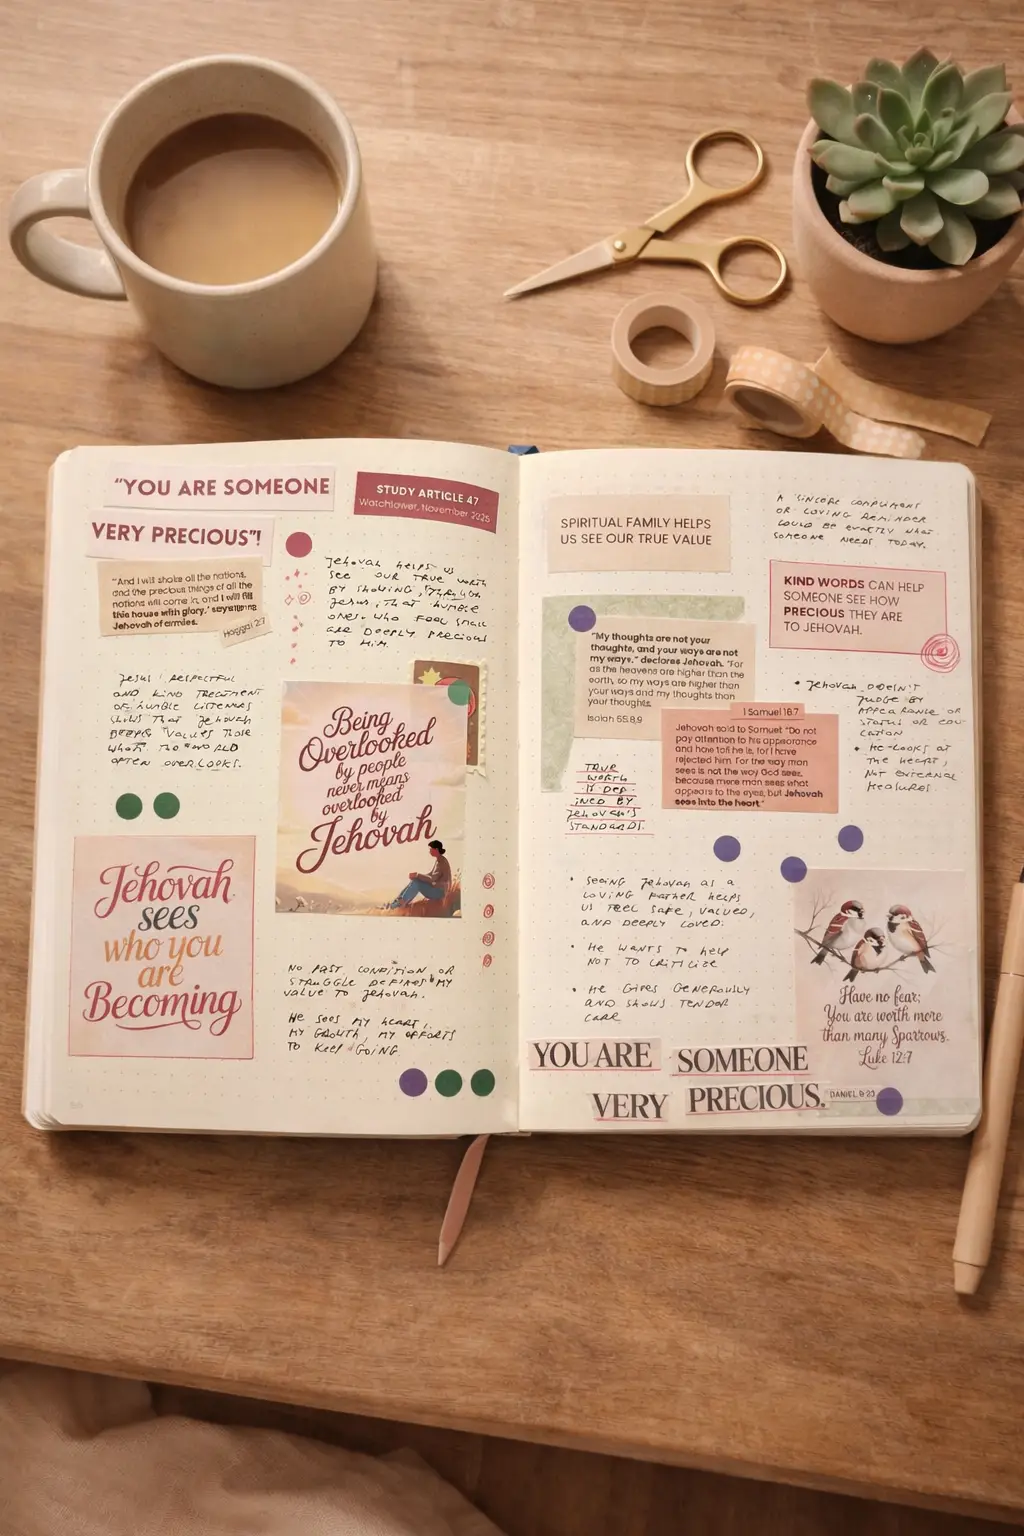 "YOU ARE SOMEONE
VERY PRECIOUS"!
STUDY ARTICLE 47
Watchtower, November 2025
"And I will shake all the nations,
and the precious things of all the
nations will come in, and I will fill
this house with glory,"
Jehovah of armies.
Haggai 2:7
Jehovah helps us
see our true worth
by showing, through
Jesus, that humble
ones who feel small
are deeply precious
to Him.
Jesus' respectful
and kind treatment
of humble listeners
shows that Jehovah
values those
the world
often overlooks.
Being
Overlooked
by people
never means
overlooked
by
Jehovah
Jehovah
sees
who you
are
Becoming
No past condition or
struggle defines my
value to Jehovah.
He sees my heart,
my growth, my efforts
to keep going
SPIRITUAL FAMILY HELPS
US SEE OUR TRUE VALUE
A sincere compliment
or loving reminder
could be exactly what
someone needs today.
KIND WORDS CAN HELP
SOMEONE SEE HOW
PRECIOUS THEY ARE
TO JEHOVAH.
"My thoughts are not your
thoughts, and your ways are not
my ways," declares Jehovah. "For
as the heavens are higher than the
earth, so my ways are higher than
your ways and my thoughts than
your thoughts.
Isaiah 55:8,9
1 Samuel 16:7
Jehovah said to Samuel: "Do not
pay attention to his appearance
and how tall he is, for I have
rejected him. For the way man
sees is not the way God sees,
because mere man sees what
appears to the eyes, but Jehovah
sees into the heart."
• Jehovah doesn't
judge by
appearance or
status or edu-
cation
• He looks at
the heart,
not external
measures
True
worth
is def-
ined by
Jehovah's
standards.
• Seeing Jehovah as a
loving Father helps
us feel safe, valued,
and deeply loved.
• He wants to help
not to criticize
• He gives generously
and shows tender
care
Have no fear;
You are worth more
than many Sparrows.
Luke 12:7
YOU ARE SOMEONE
VERY PRECIOUS.
DANIEL 9:23